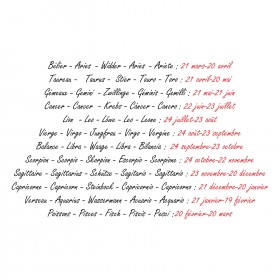 Bélier - Aries - Widder - Aries - Ariete : 21 mars-20 avril
Taureau - Taurus - Stier - Tauro - Toro : 21 avril-20 mai
Gémeaux - Gemini - Zwillinge - Geminis - Gemelli : 21 mai-21 juin
Cancer - Cancer - Krebs - Cáncer - Cancro : 22 juin-23 juillet
Lion - Leo - Löwe - Leo - Leone : 24 juillet-23 août
Vierge - Virgo - Jungfrau - Virgo - Vergine : 24 août-23 septembre
Balance - Libra - Waage - Libra - Bilancia : 24 septembre-23 octobre
Scorpion - Scorpio - Skorpion - Escorpio - Scorpione : 24 octobre-22 novembre
Sagittaire - Sagittarius - Schütze - Sagitario - Sagittario : 23 novembre-20 décembre
Capricorne - Capricorn - Steinbock - Capricornio - Capricorno : 21 décembre-20 janvier
Verseau - Aquarius - Wassermann - Acuario - Acquario : 21 janvier-19 février
Poissons - Pisces - Fisch - Piscis - Pesci : 20 février-20 mars